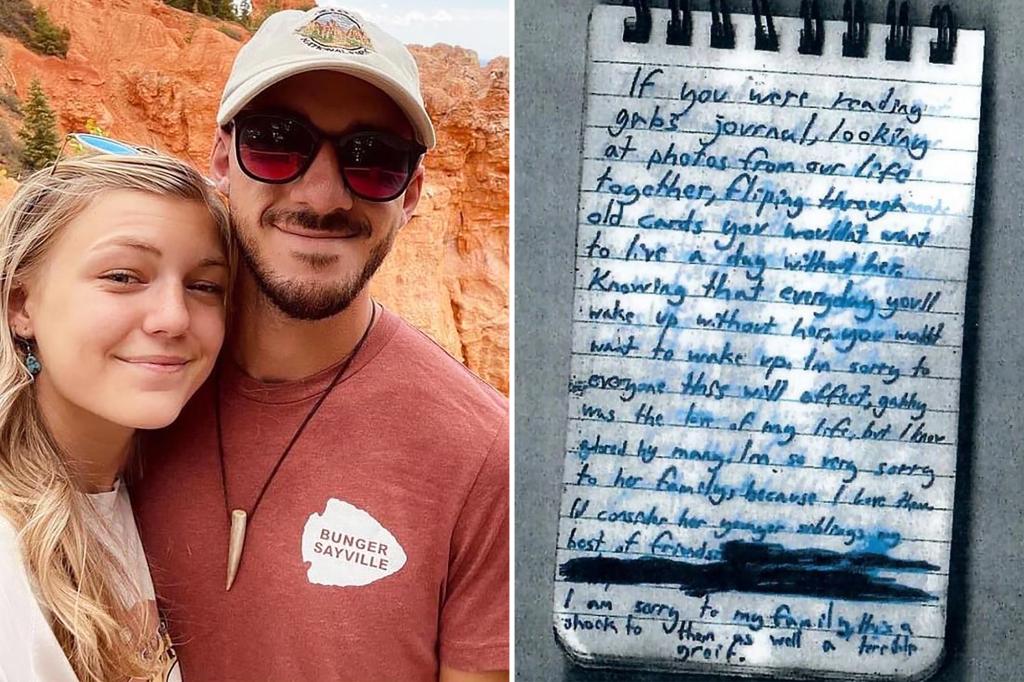 BUNGER
SAYVILLE
If you were reading
gabs journal, looking
at photos from our life
together, fliping through
old cards you wouldnt want
to live a day without her.
Knowing that everyday you'll
wake up without her, you wouldnt
want to wake up. I'm sorry to
everyone this will affect, gabby
was the love of my life, but I know
adored by many. I'm so very sorry
to her family, because I love them.
I'd consider her younger siblings my
best of friends
I am sorry to my family, this is a
shock to them as well a terrible
greif.